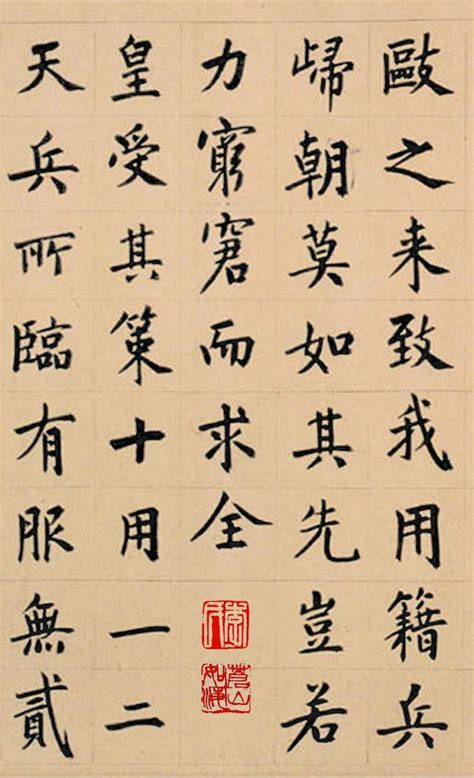 敺之来致我用籍兵
歸朝莫如其先豈若
力窮窘而求全
皇受其策十用一二
天兵所臨有服無貳
蒼山如海